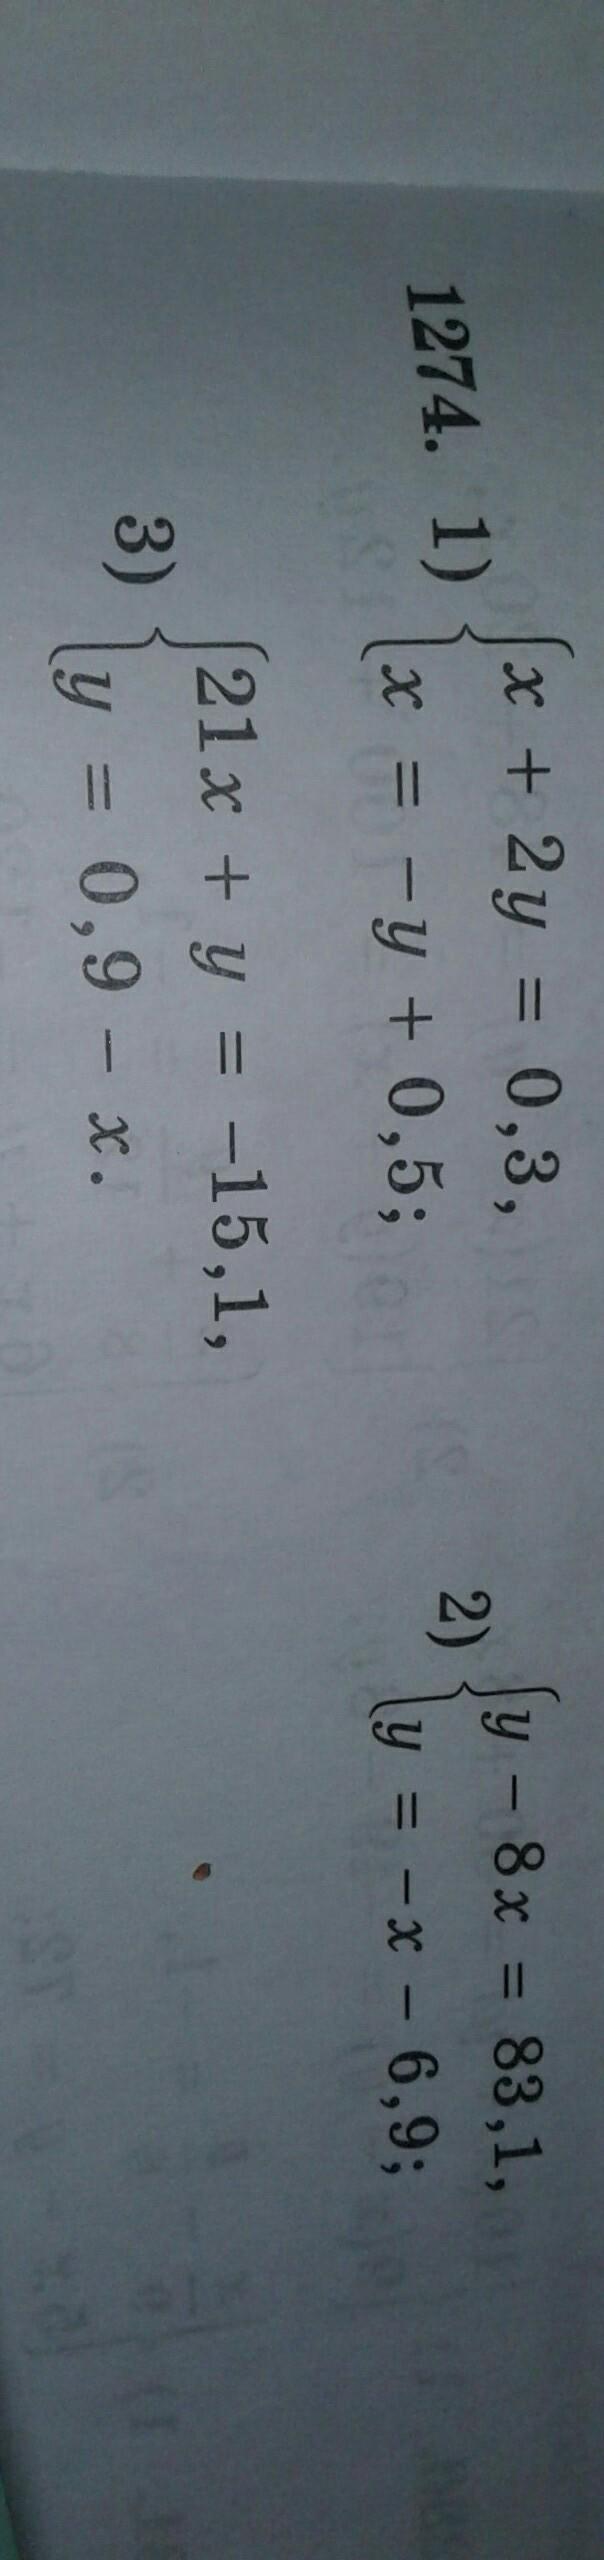 1274. 1) { x + 2y = 0,3,
x = -y + 0,5;
2) { y - 8x = 83,1,
y = -x - 6,9;
3) { 21x + y = -15,1,
y = 0,9 - x.